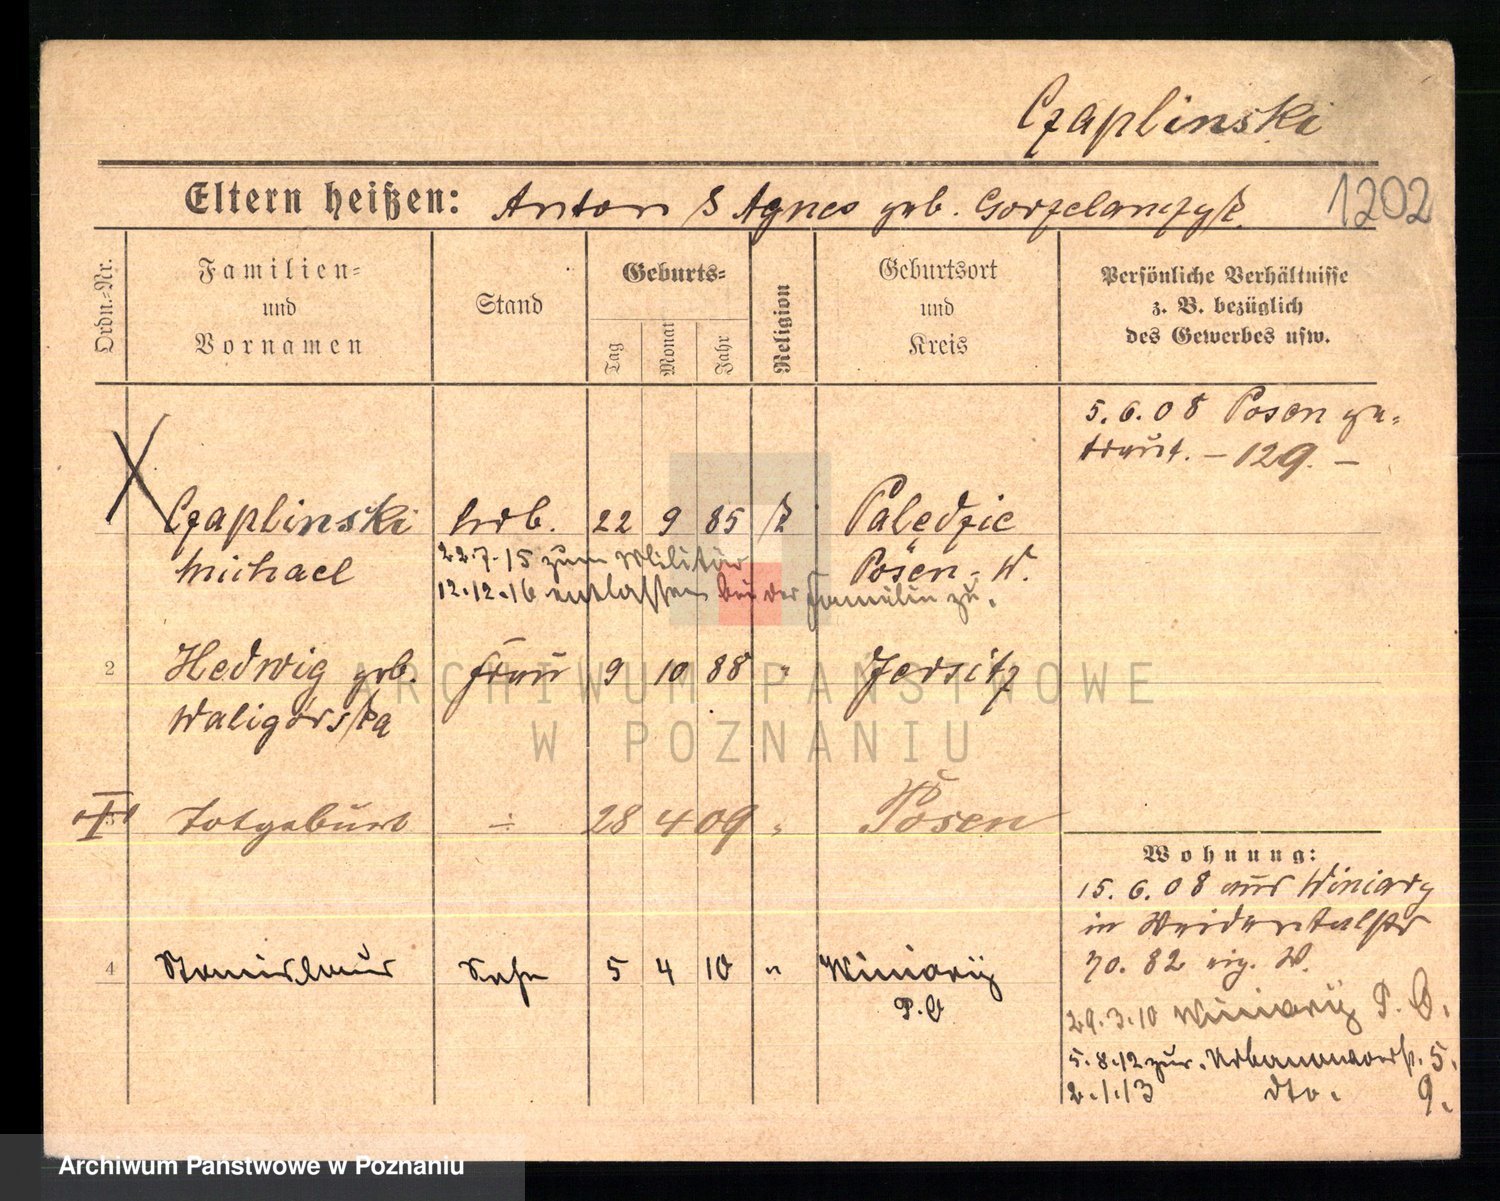 Czaplinski
Eltern heißen: Anton & Agnes geb. Gorzelanczyk
1202
Ordn.-Nr.
Familien-
und
Vornamen
Stand
Geburts-
Tag
Monat
Jahr
Religion
Geburtsort
und
Kreis
Persönliche Verhältnisse
z. B. bezüglich
des Gewerbes usw.
5.6.08 Posen ge-
traut. – 129. –
Czaplinski Arb. 22 9 85 k Palędzie
Michael Posen-W.
22.7.15 zum Militär
12.12.16 entlassen bei der Familie zu.
2 Hedwig geb. Frau 9 10 88 " Jersitz
Waligórska
3 Totgeburt ÷ 28 4 09 " Posen
Wohnung:
15.6.08 aus Winiary
in Weidentalstr
70. 82 eig. W.
4 Stanislaus Sohn 5 4 10 " Winiary
P. O
29.3.10 Winiary P. O.
5.8.12 zur. 5.
2.1.13 dto. 9.
ARCHIWUM PAŃSTWOWE
W POZNANIU
Archiwum Państwowe w Poznaniu